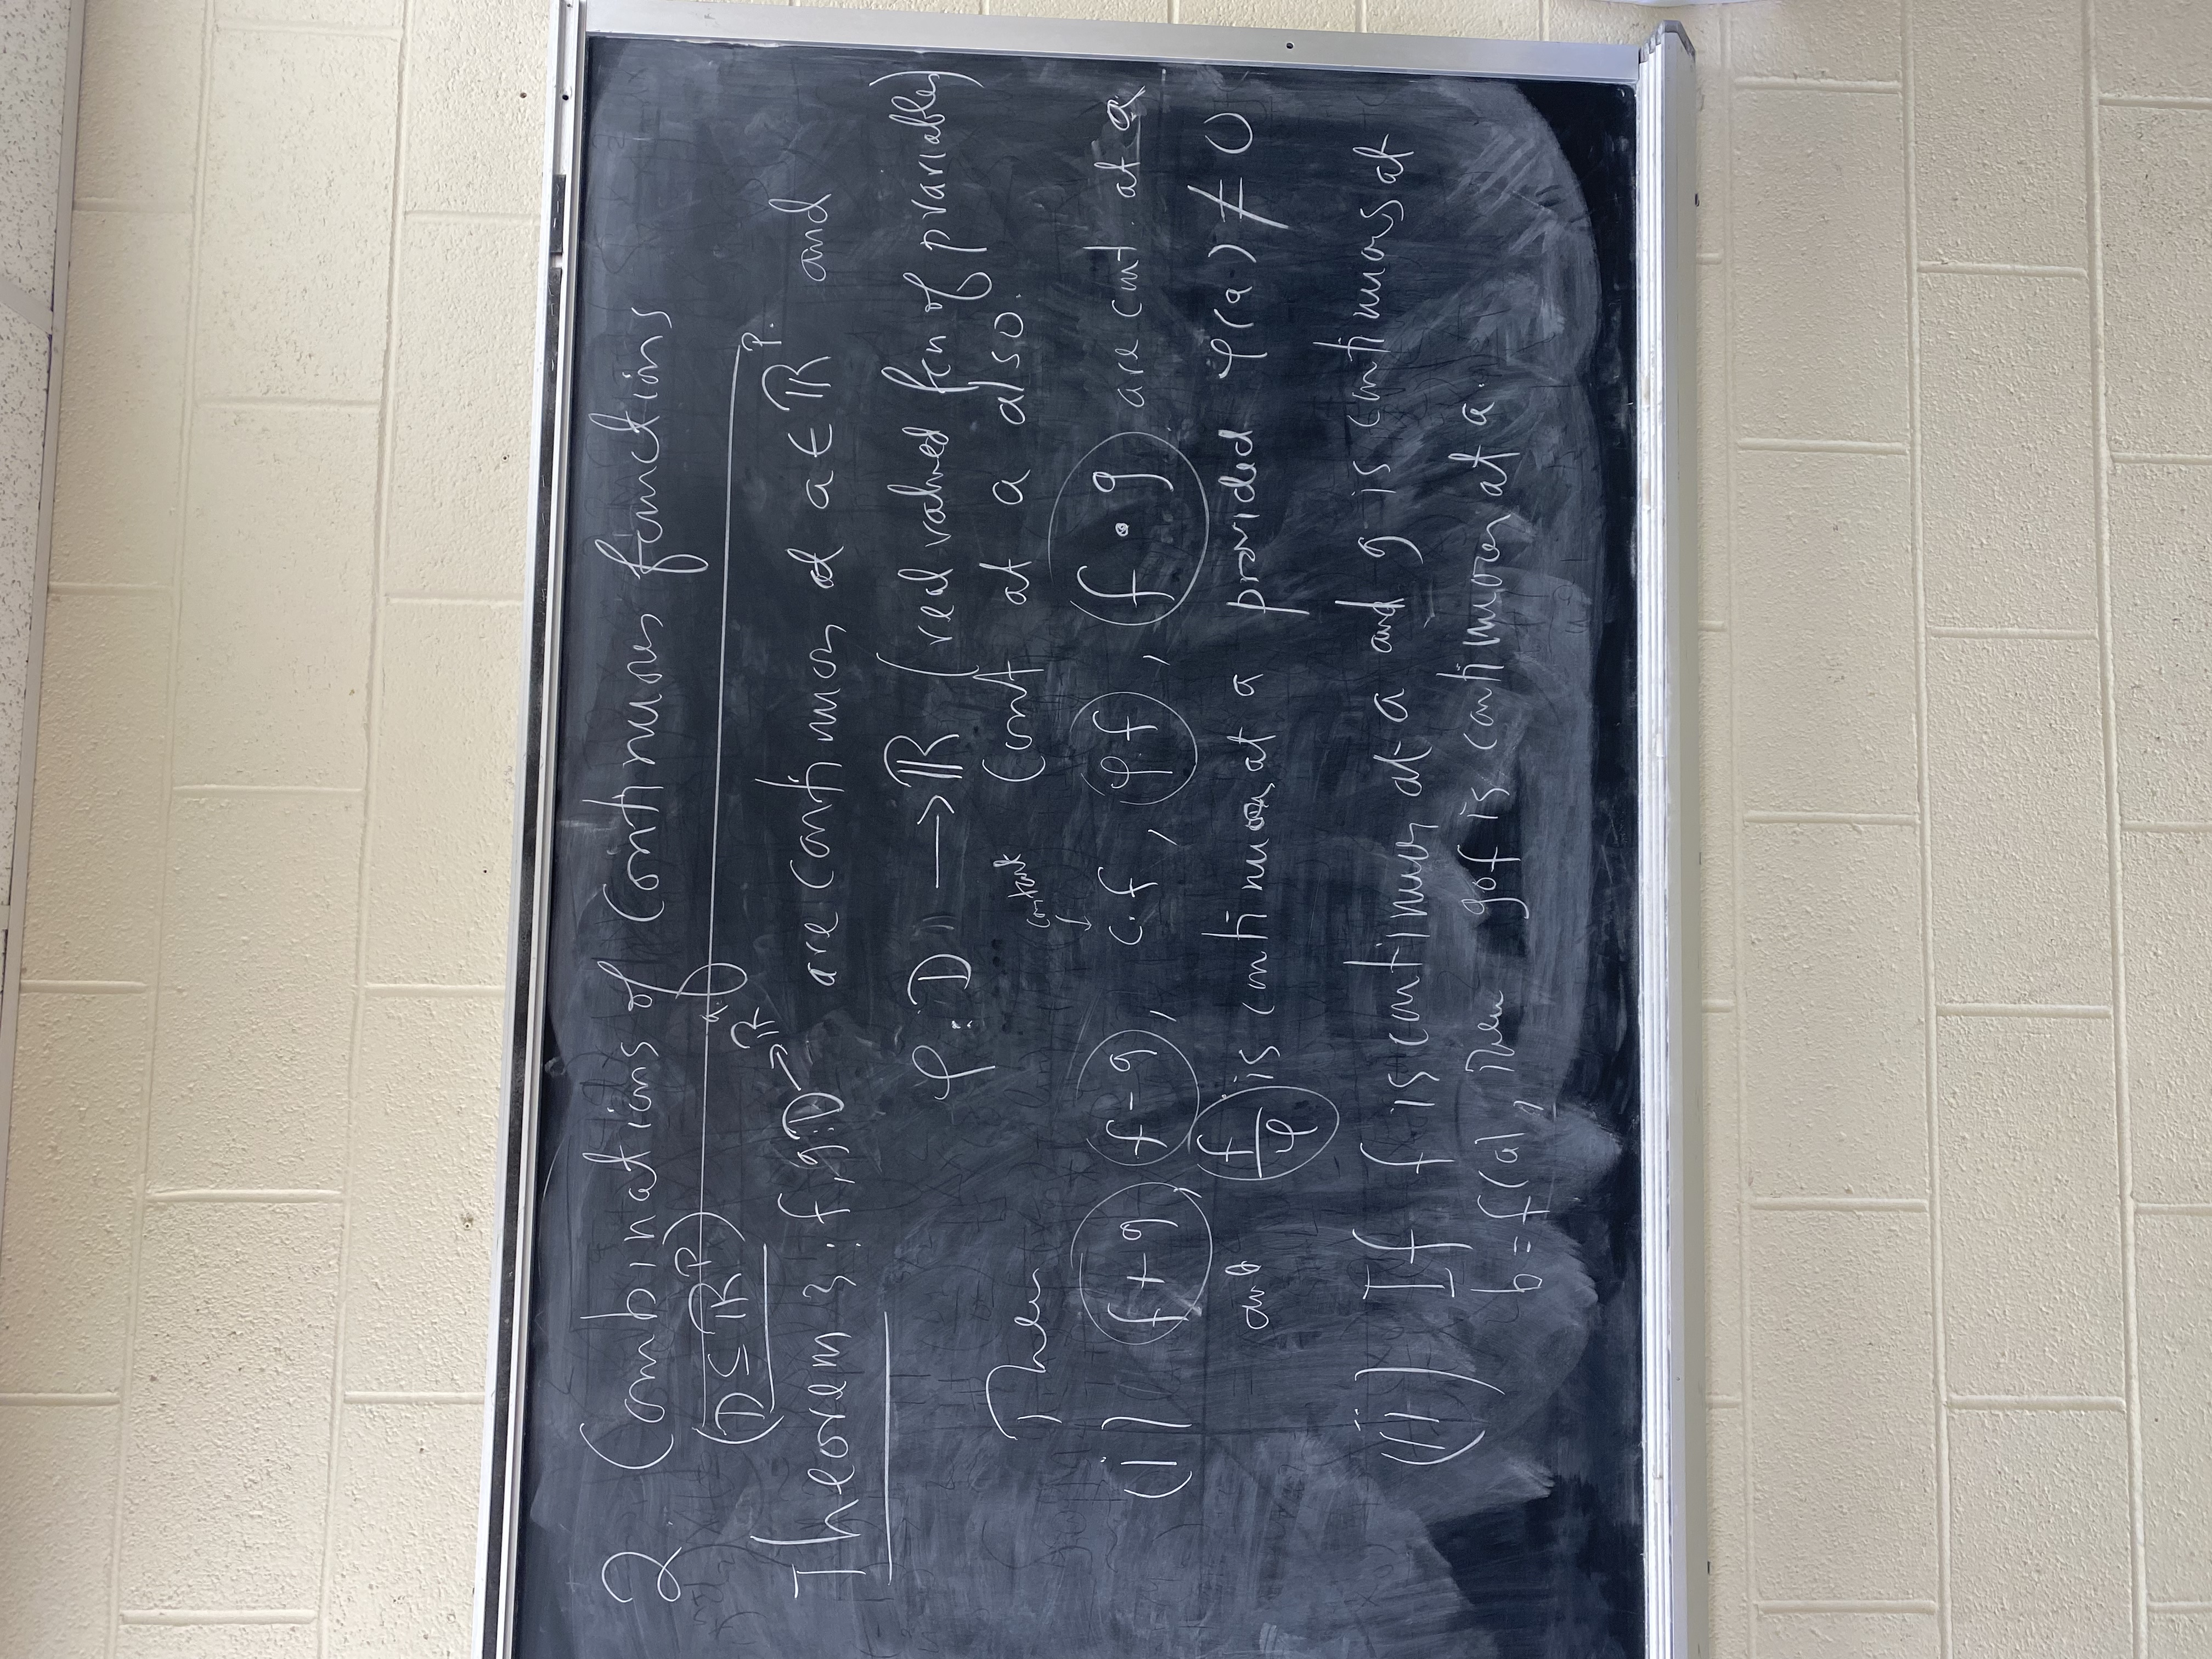 2 Combinations of Continuous functions
(D ⊆ ℝᵖ)
Theorem 3: f, g: D → ℝ^q are continuous at a ∈ ℝᵖ. and
φ: D → ℝ (real valued fcn of p variables)
cont at a also.
Then
constant
↓
(i) f+g, f-g, c.f, φ.f, (f • g) are cont. at a
and f/φ is continuous at a provided φ(a) ≠ 0
(ii) If f is continuous at a and g is continuous at
b = f(a), Then gof is continuous at a.